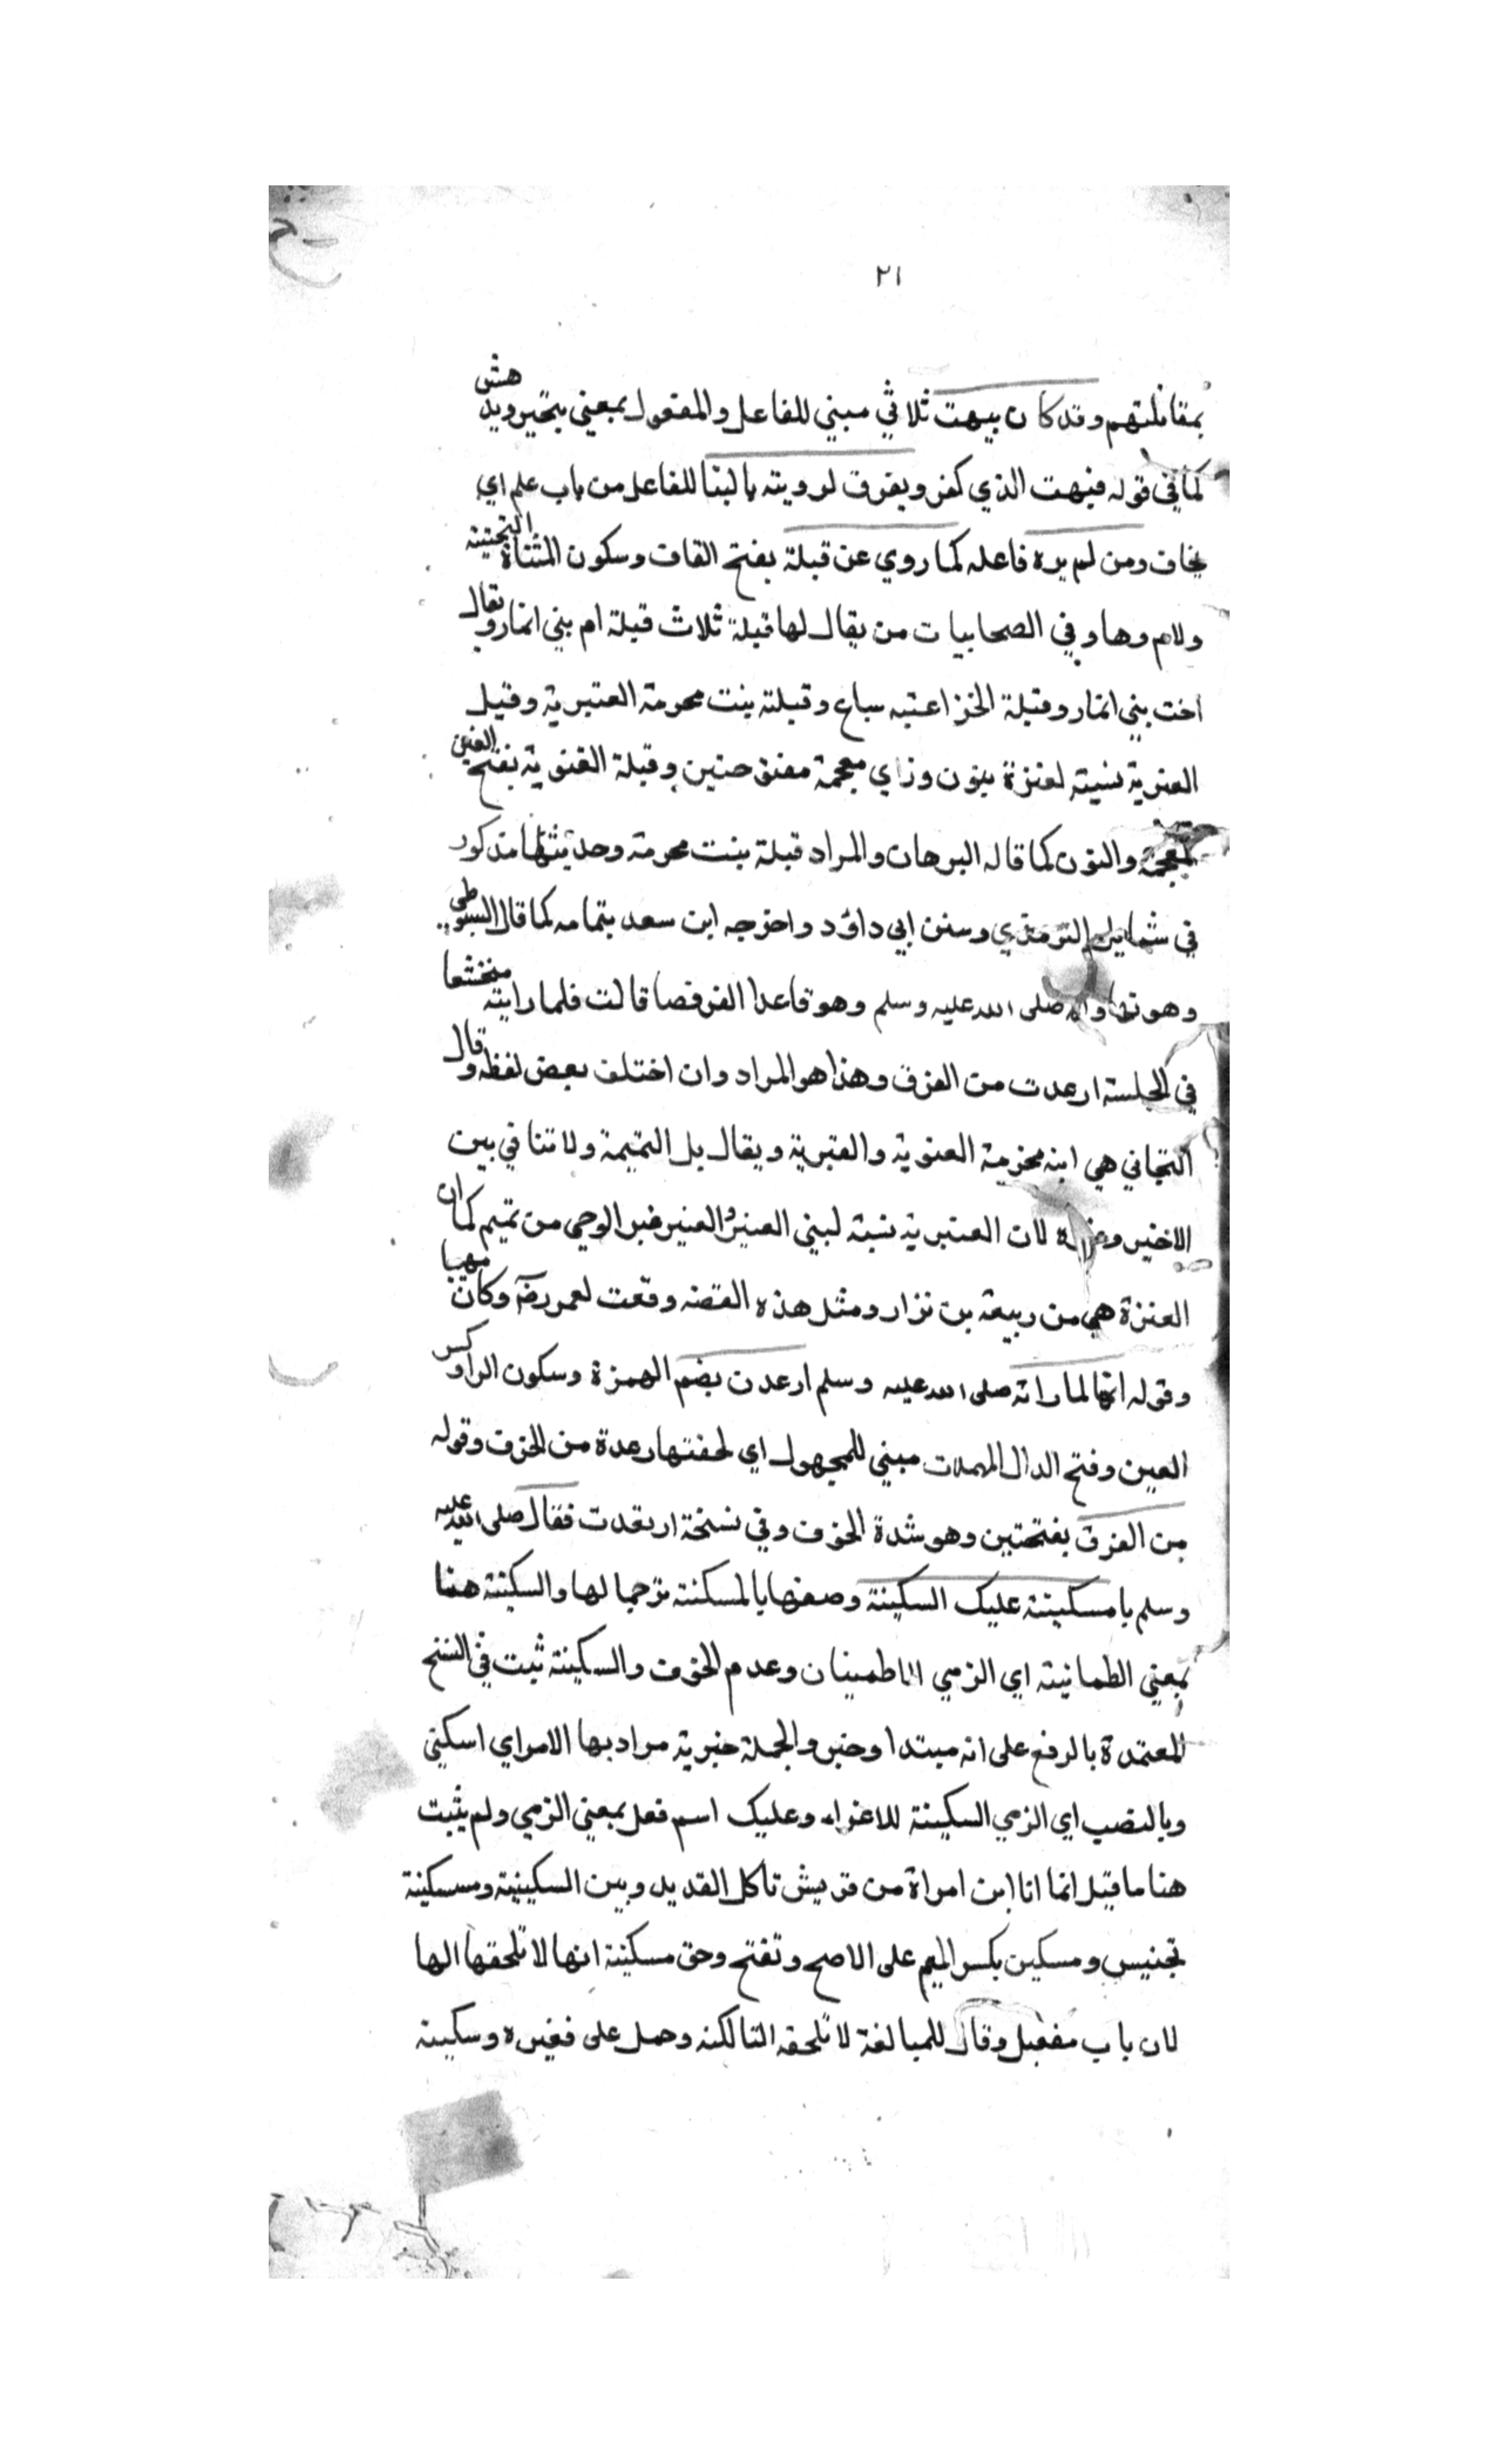 ٢١
بمقاتلتهم وقد كان يبهت ثلاثي مبني للفاعل والمفعول بمعني يتحير ويدهش
كما في قوله فبهت الذي كفر ويفرق لرويته بالبنا للفاعل من باب علم اي
يخاف ومن لم يره فاعله كما روي عن قيلة بفتح القاف وسكون المثناة التحتية
ولام وها وفي الصحابيات من يقال لها قيلة ثلاث قيلة ام بني انمار ويقال
اخت بني انمار وقيلة الخزاعتيه سباع وقيلة بنت محرمة العنبرية وقيل
العنزية نسبته لعنزة بنون وزاي معجمة مفتوحتين وقيلة الغنوية بفتح الغين
المعجمة والنون كما قاله البرهان والمراد قيلة بنت محرمة وحديثها مذكور
في شمايل الترمذي وسنن ابي داود واخرجه ابن سعد بتمامه كما قال السيوطي
وهو صلى الله عليه وسلم وهو قاعدا القرفصا قالت فلما رايته متخشعا
في الجلسة ارعدت من الفرق وهذا هو المراد وان اختلف بعض لفظه وقال
التجاني هي ابنه مخزمة العنوية والعنبرية ويقال بل التميمة ولا تنافي بين
الاخير لان العنبرية نسبة لبني العنبر والعنبر من تميم كما ان
العنزة هي من ربيعة بن نزار ومثل هذه القصه وقعت لعمر رضه وكان مهيبا
وقوله انها لما راته صلى الله عليه وسلم ارعدت بضم الهمزة وسكون الرا وكسر
العين وفتح الدال المهملات مبني للمجهول اي لحقتها رعدة من الخوف وقوله
من الفرق بفتحتين وهو شدة الخوف وفي نسخة ارتعدت فقال صلى الله عليه
وسلم يا مسكينة عليك السكينة وصفها بالمسكنة ترحما لها والسكينة هنا
بمعني الطمانينة اي الزمي الاطمينان وعدم الخوف والسكينة ثبت في النسخ
المعتمدة بالرفع على انه مبتدا وخبر والجملة خبرية مراد بها الامر اي اسكني
وبالنصب اي الزمي السكينة للاغراء وعليك اسم فعل بمعني الزمي ولم يثبت
هنا ما قيل انما انا ابن امراة من قريش تاكل القديد وبين السكينة ومسكينة
تجنيس ومسكين بكسر الميم على الاصح وتفتح وحق مسكينة انها لا تلحقها الها
لان باب مفعيل وقال للمبالغة لا تلحقه التا لكنه وحمل على فقيره وسكينة